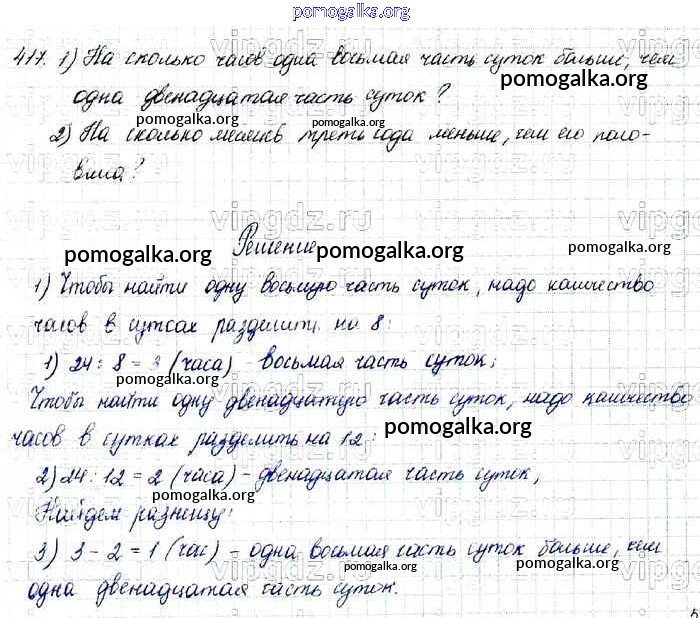 pomogalka.org
417. 1) На сколько часов одна восьмая часть суток больше, чем
pomogalka.org
одна двенадцатая часть суток?
pomogalka.org
pomogalka.org
2) На сколько месяцев треть года меньше, чем его поло-
вина?
vipgdz.ru
Решение
pomogalka.org
pomogalka.org
pomogalka.org
1) Чтобы найти одну восьмую часть суток, надо количество
часов в сутках разделить на 8:
1) 24 : 8 = 3 (часа) - восьмая часть суток;
pomogalka.org
Чтобы найти одну двенадцатую часть суток, надо количество
часов в сутках разделить на 12:
pomogalka.org
2) 24 : 12 = 2 (часа) - двенадцатая часть суток,
pomogalka.org
Найдем разницу:
3) 3 - 2 = 1 (час) - одна восьмая часть суток больше, чем
pomogalka.org
одна двенадцатая часть суток.
pomogalka.org